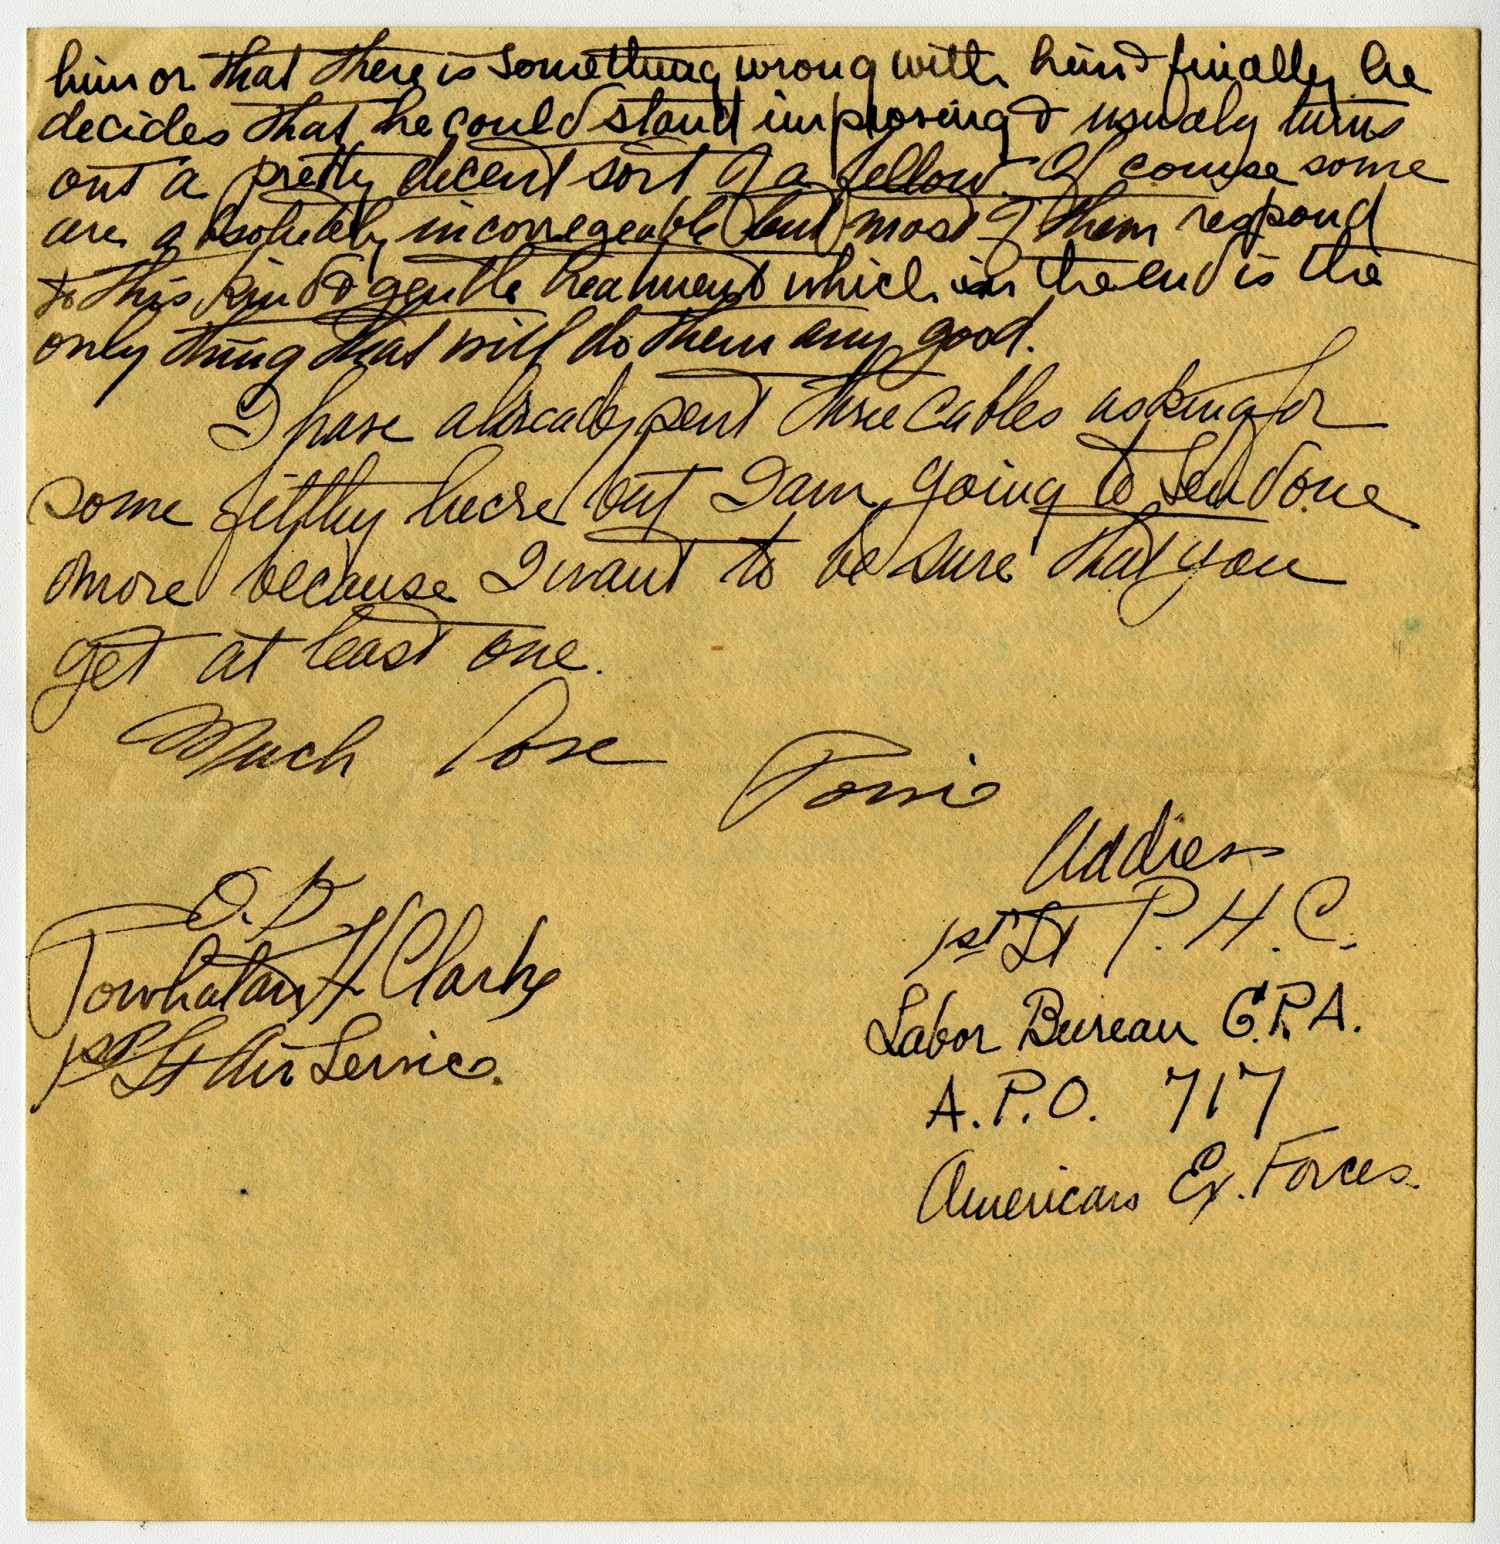 him or that there is something wrong with him & finally he
decides that he could stand improving & usualy turns
out a pretty decent sort of a fellow. Of course some
are absolutely incorregeable but most of them respond
to this kind & gentle treatment which in the end is the
only thing that will do them any good.
I have already sent three cables asking for
some filthy lucre but I am going to send one
more because I want to be sure that you
get at least one.
Much love
Address
1st Lt P. H. C.
Labor Bureau G.P.A.
A.P.O. 717
American Ex. Forces.
O.K.
Powhatan H Clarke
1st Lt Air Service.